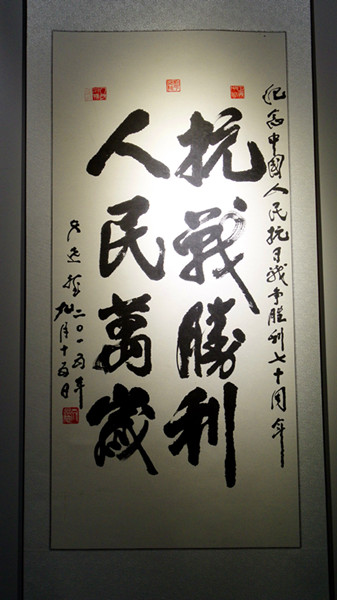 纪念中國人民抗日战争胜利七十周年
抗戰勝利
人民萬歲
二〇一五年
九月十五日